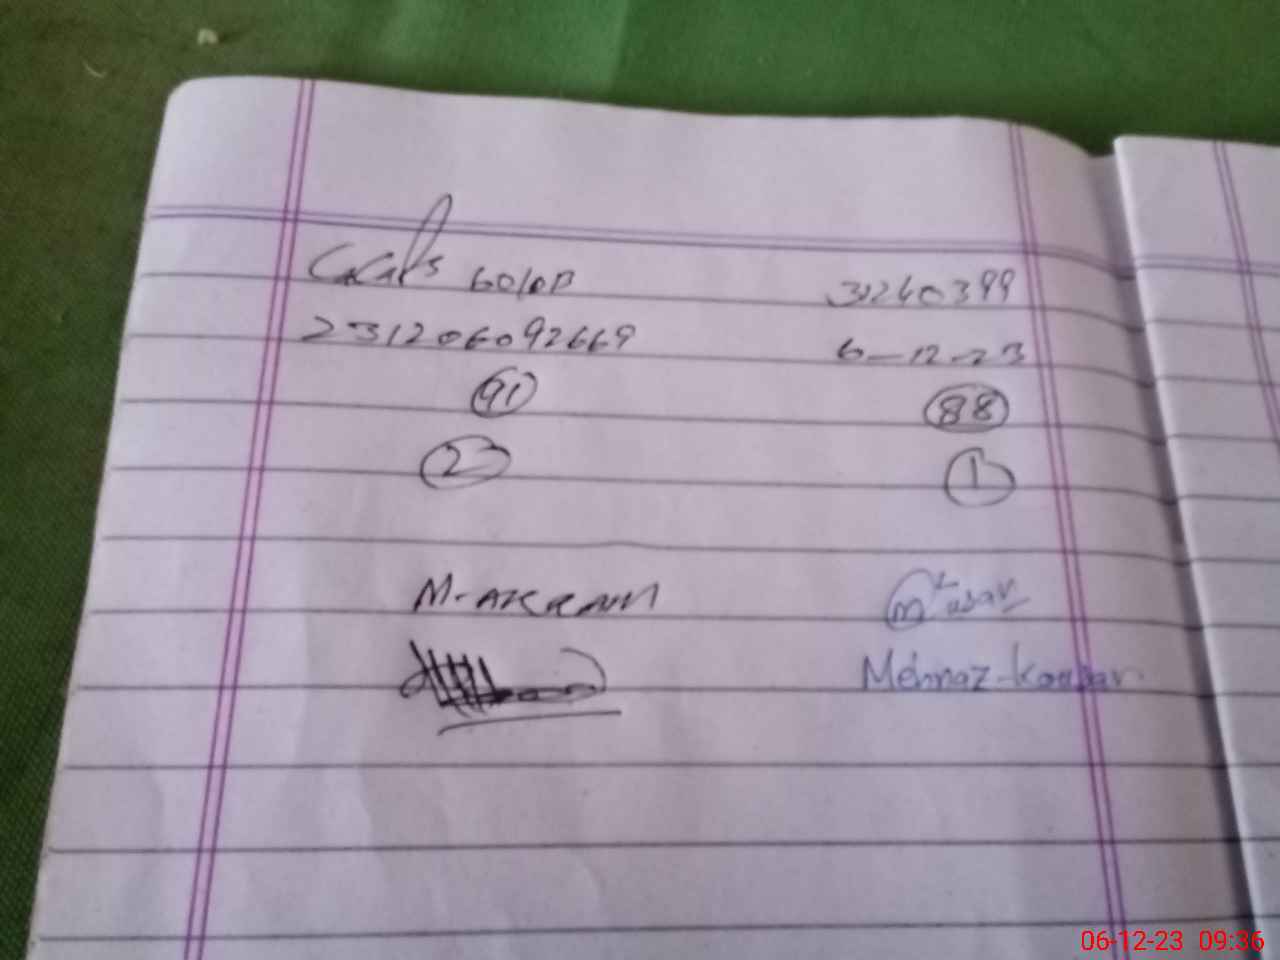 31240399
231206092669 6-12-23
91 88
23 1
M-AKRAM
Mehnaz-Kousar
06-12-23 09:36